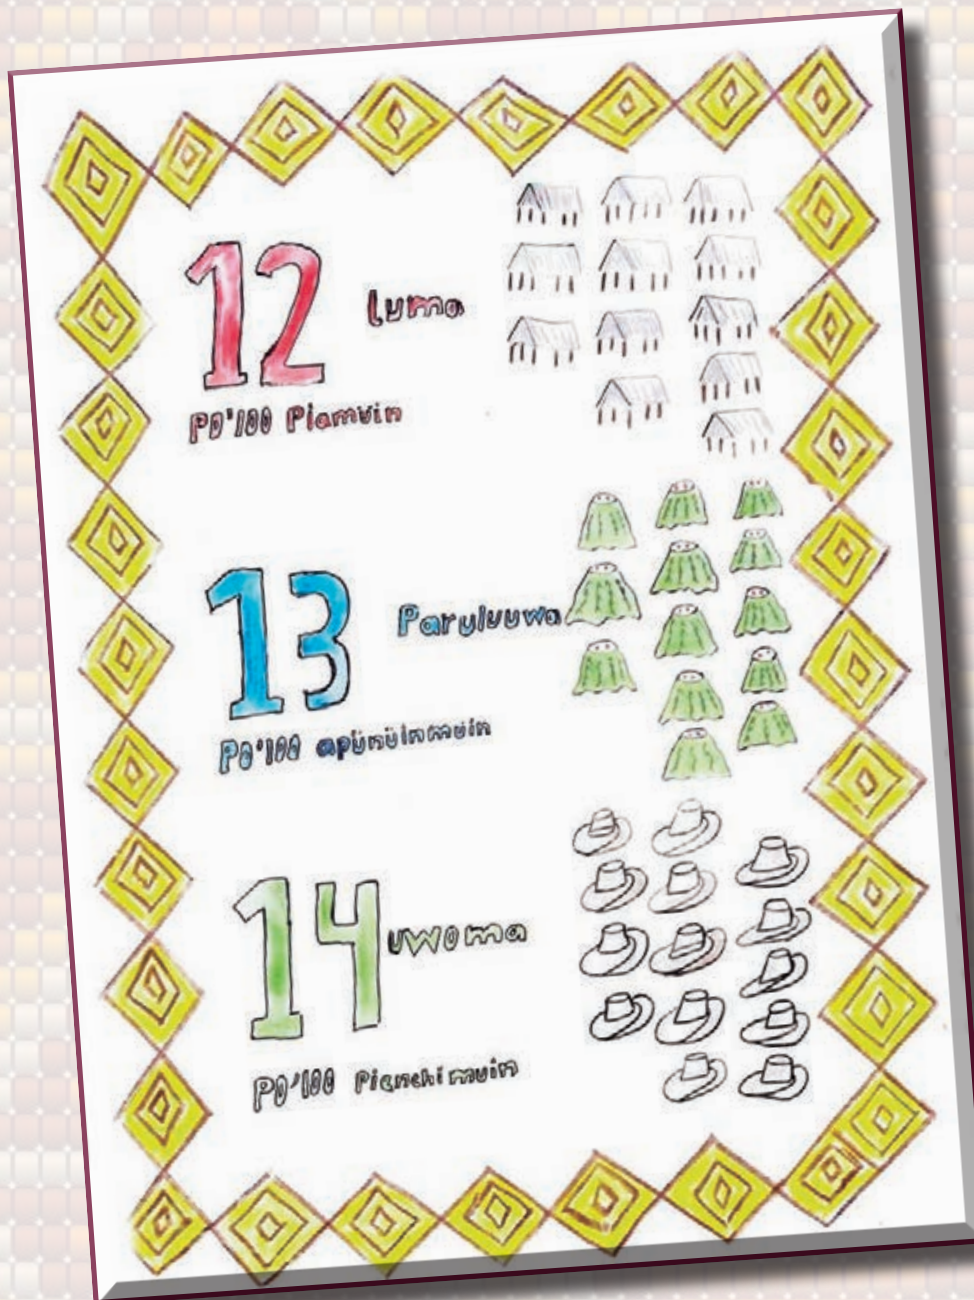 12 luma
Po'loo Piamuin
13 Paruluuwa
Po'loo apünüinmuin
14 uwoma
Po'loo Pienchimuin